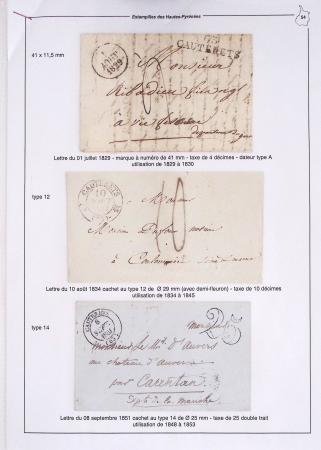 Estampilles des Hautes-Pyrénées
54
41 x 11,5 mm
CAUTERETS
Monsieur
à Vic
Lettre du 01 juillet 1829 - marque à numéro de 41 mm - taxe de 4 décimes - dateur type A
utilisation de 1829 à 1830
type 12
CAUTERETS
10
Monsieur
à
Lettre du 10 août 1834 cachet au type 12 de Ø 29 mm (avec demi-fleuron) - taxe de 10 décimes
utilisation de 1834 à 1845
type 14
CAUTERETS
25
Monsieur le
au château d'Auvers
par Carentan
Dpt de la Manche
Lettre du 08 septembre 1851 cachet au type 14 de Ø 25 mm - taxe de 25 double trait
utilisation de 1848 à 1853